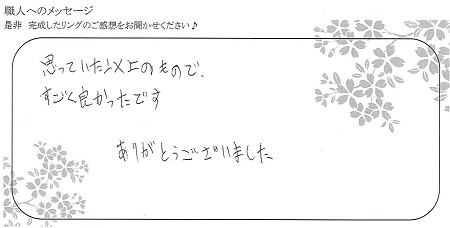 職人へのメッセージ
是非 完成したリングのご感想をお聞かせください♪
思っていた以上のもので、
すごく良かったです
ありがとうございました